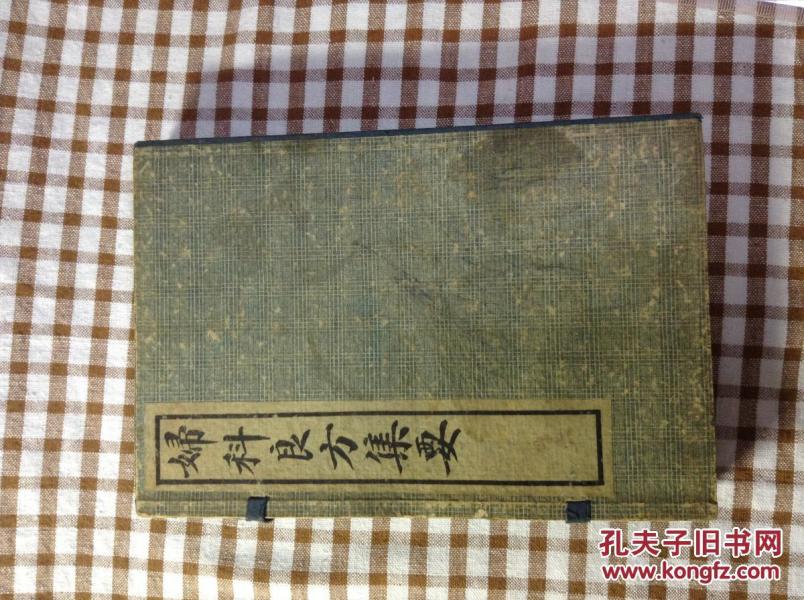 婦科良方集要
孔夫子旧书网
www.kongfz.com